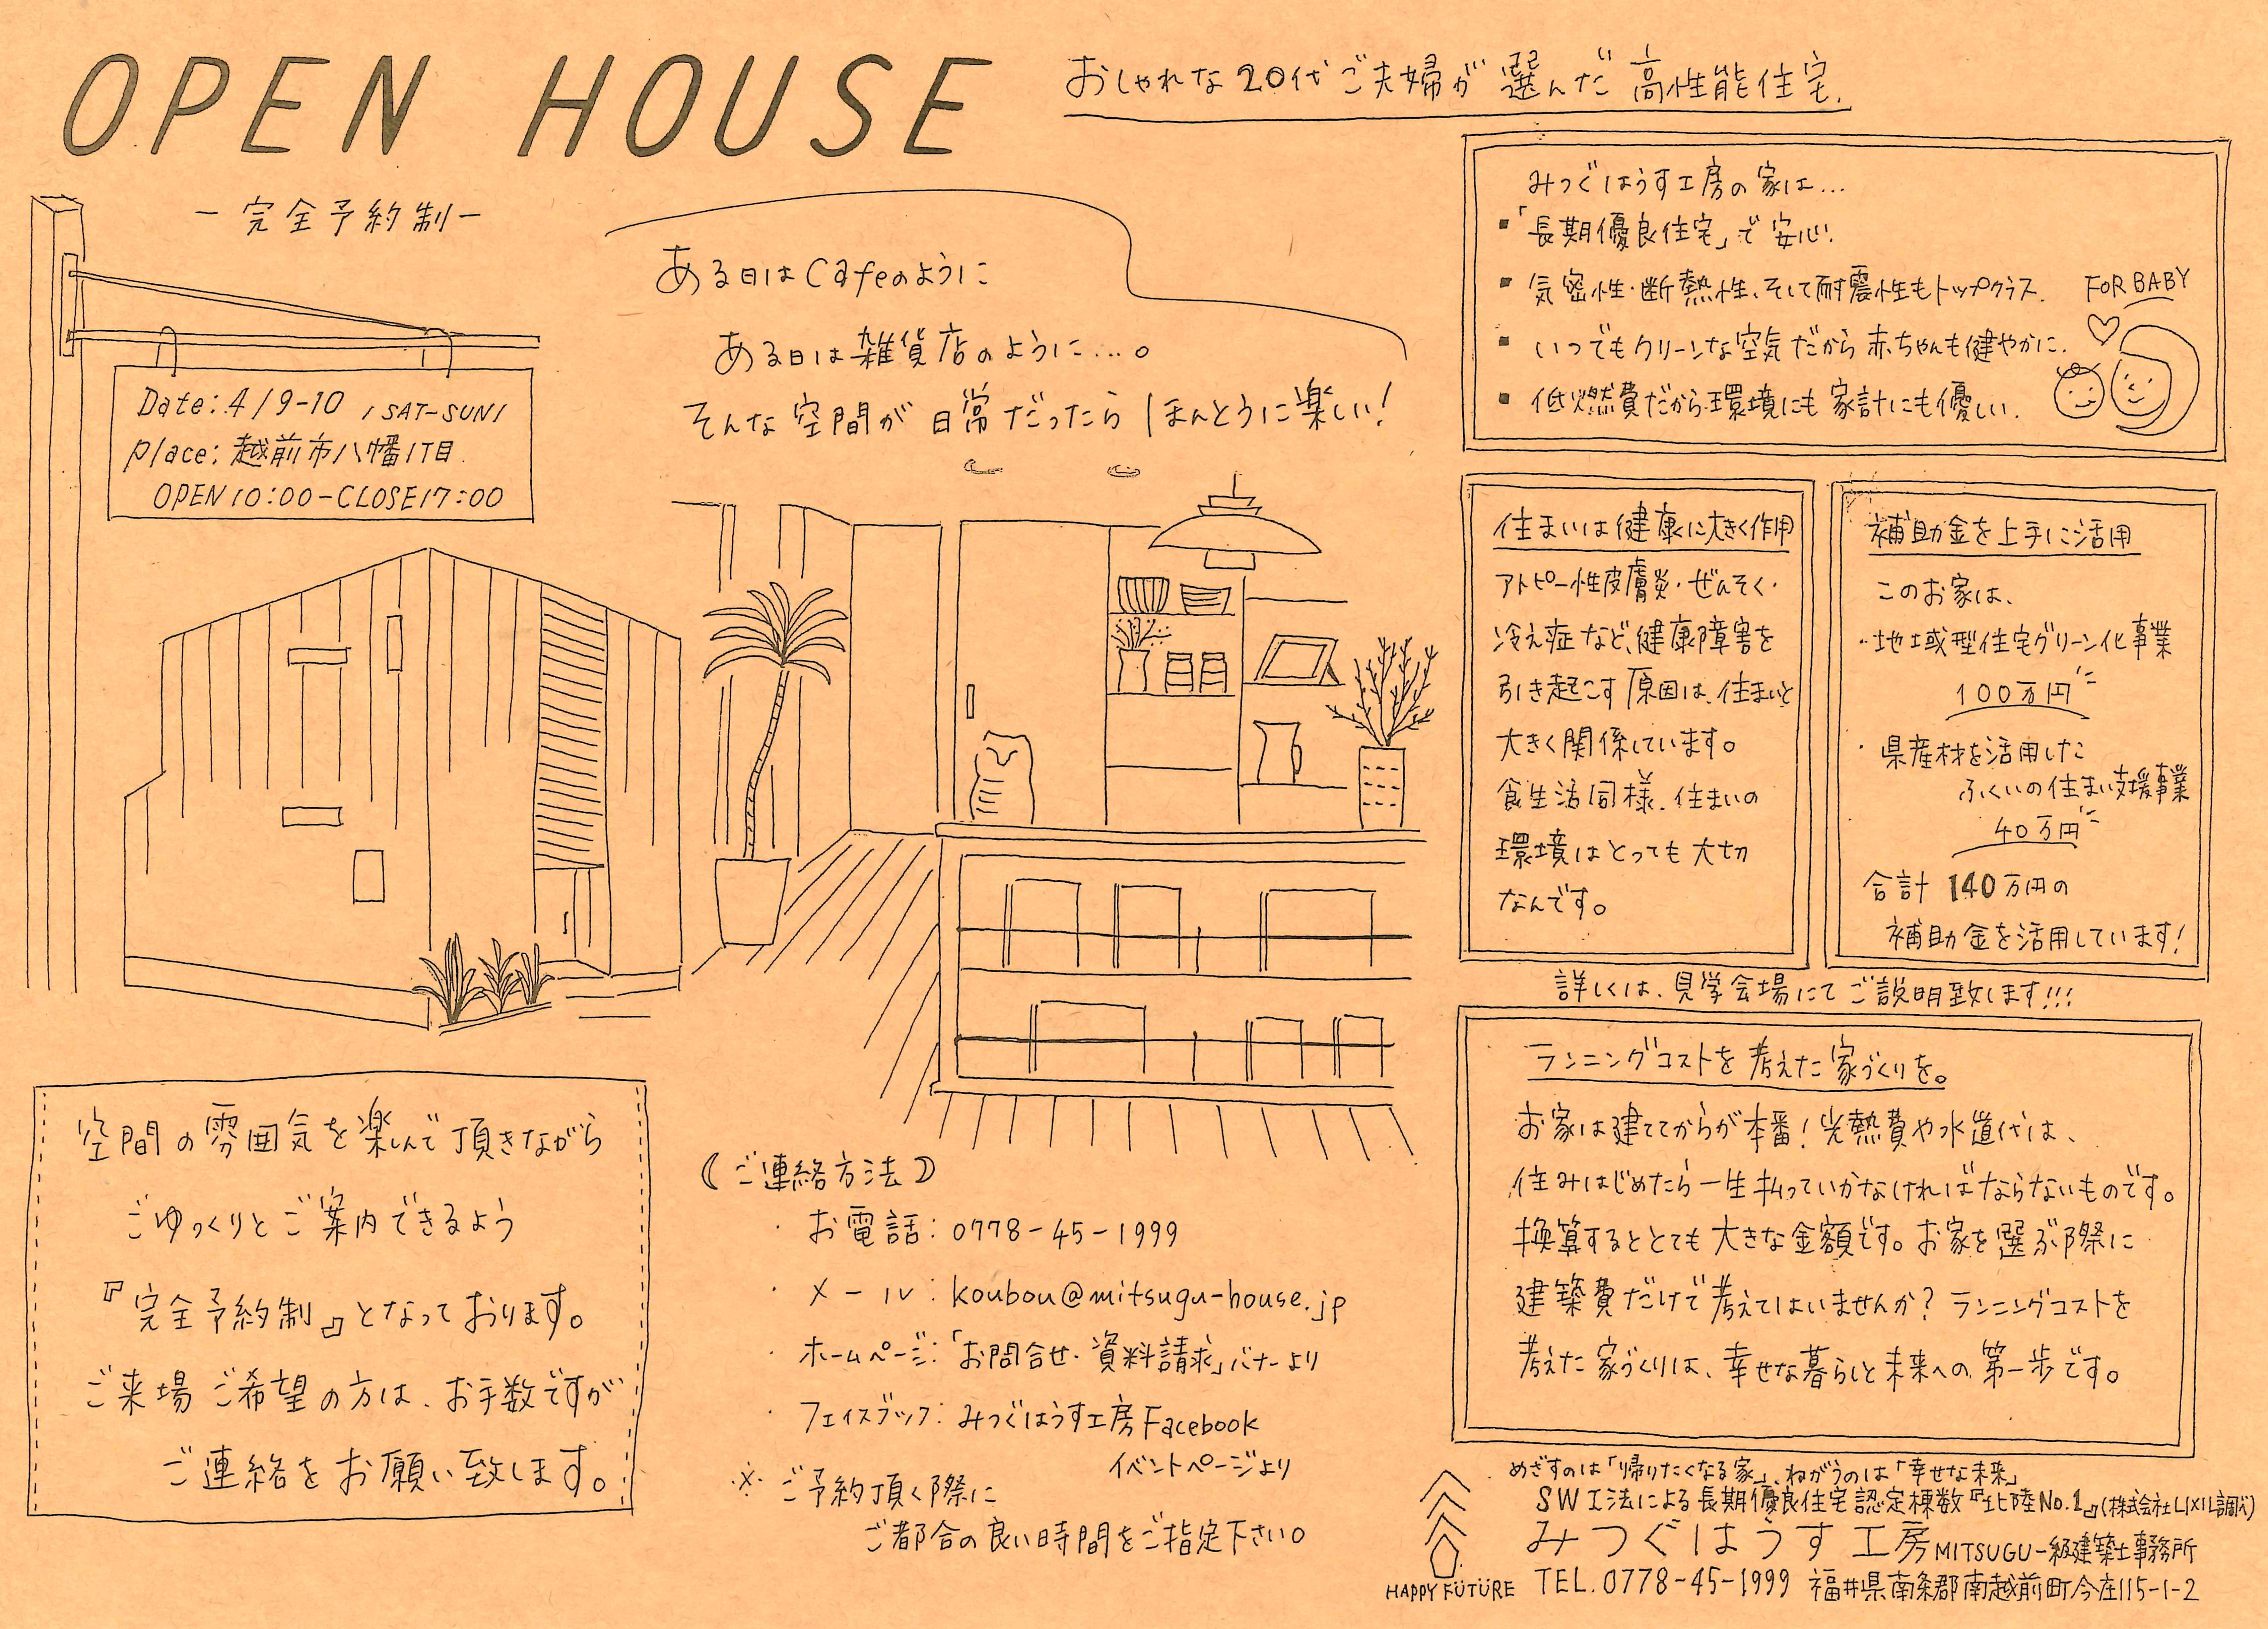 OPEN HOUSE
おしゃれな20代ご夫婦が選んだ高性能住宅.
-完全予約制-
Date: 4/9-10 /SAT-SUN/
place: 越前市八幡1丁目.
OPEN10:00-CLOSE17:00
ある日はCafeのように
ある日は雑貨店のように...。
そんな空間が日常だったらほんとうに楽しい!
みつぐはうす工房の家は...
▪「長期優良住宅」で安心.
▪気密性・断熱性、そして耐震性もトップクラス.
▪いつでもクリーンな空気だから赤ちゃんも健やかに.
▪低燃費だから環境にも家計にも優しい.
FOR BABY
住まいは健康に大きく作用
アトピー性皮膚炎・ぜんそく・
冷え症など、健康障害を
引き起こす原因は、住まいと
大きく関係しています。
食生活同様、住まいの
環境はとっても大切
なんです。
補助金を上手に活用
このお家は、
・地域型住宅グリーン化事業
100万円
・県産材を活用した
ふくいの住まい支援事業
40万円
合計 140万円の
補助金を活用しています!
詳しくは、見学会場にてご説明致します!!!
ランニングコストを考えた家づくりを。
お家は建ててからが本番!光熱費や水道代は、
住みはじめたら一生払っていかなければならないものです。
換算するととても大きな金額です。お家を選ぶ際に
建築費だけで考えてはいませんか?ランニングコストを
考えた家づくりは、幸せな暮らしと未来への第一歩です。
空間の雰囲気を楽しんで頂きながら
ごゆっくりとご案内できるよう
『完全予約制』となっております。
ご来場ご希望の方は、お手数ですが
ご連絡をお願い致します。
(ご連絡方法)
・お電話:0778-45-1999
・メール:koubou@mitsugu-house.jp
・ホームページ:「お問合せ・資料請求」バナーより
・フェイスブック:みつぐはうす工房Facebook
イベントページより
※ご予約頂く際に
ご都合の良い時間をご指定下さい。
めざすのは「帰りたくなる家」、ねがうのは「幸せな未来」
SW工法による長期優良住宅認定棟数『北陸No.1』(株式会社LIXIL調べ)
みつぐはうす工房 MITSUGU一級建築士事務所
HAPPY FUTURE
TEL.0778-45-1999 福井県南条郡南越前町今庄115-1-2